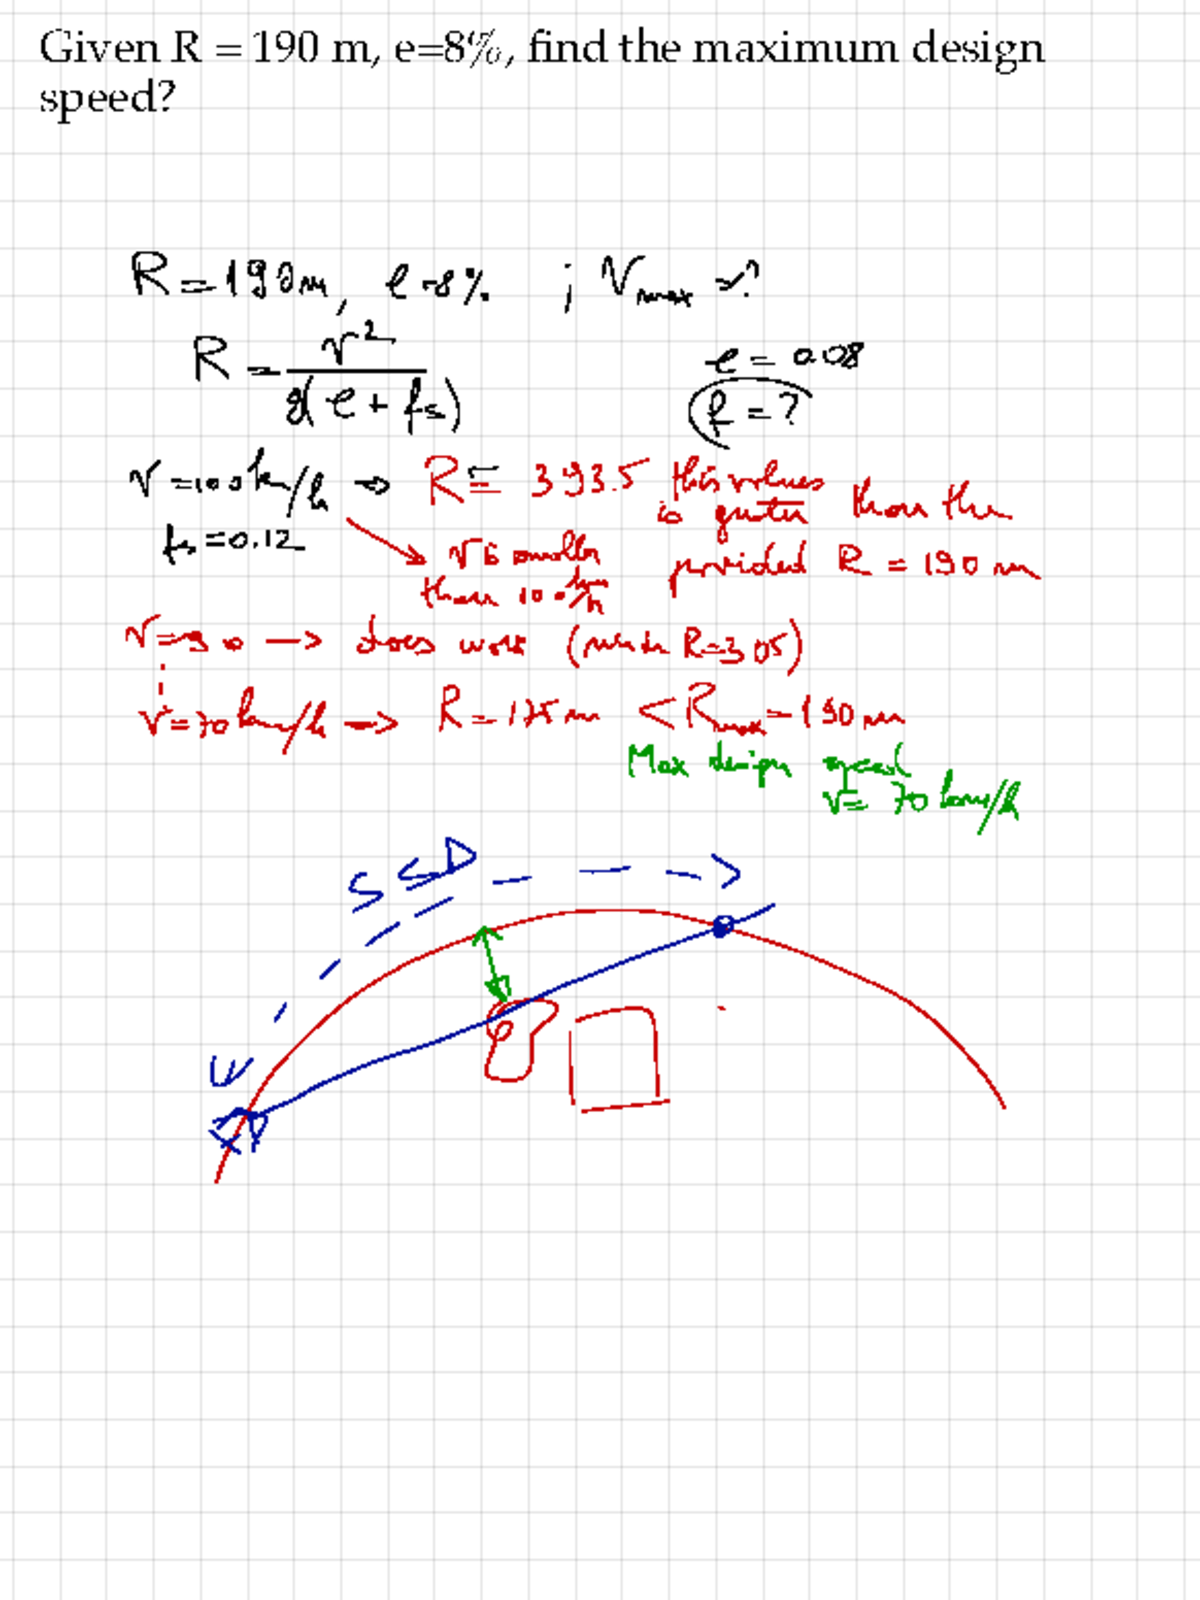 Given R = 190 m, e=8%, find the maximum design
speed?
R = 190m, e=8% ; Vmax = ?
R = v² / g(e + fs)
e = 0.08
f = ?
V = 100 km/h ⇒ R = 393.5 this values
is greater than the
fs = 0.12
V is smaller
than 100 km/h
provided R = 190 m
V = 90 → does work (with R=305)
V = 70 km/h → R = 175 m < Rmax = 190 m
Max design speed
V = 70 km/h
SSD